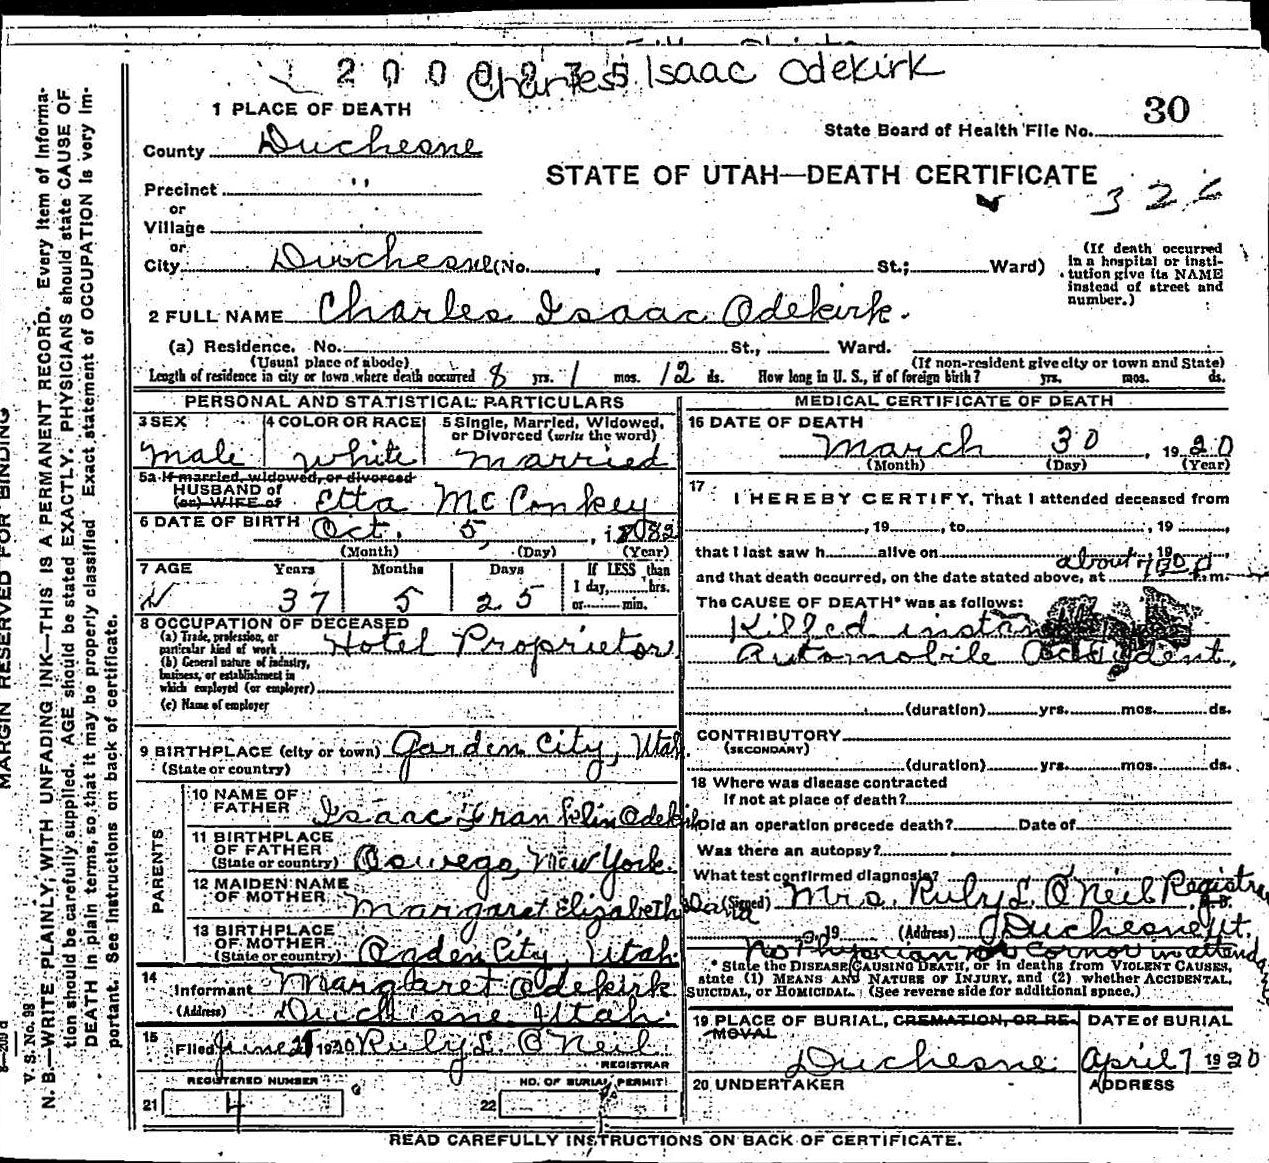 2000235
Charles Isaac Odekirk
30
1 PLACE OF DEATH
State Board of Health File No.
County Duchesne
STATE OF UTAH—DEATH CERTIFICATE
Precinct "
or
Village
or
City Duchesne (No. , St.; Ward)
(If death occurred
in a hospital or insti-
tution give its NAME
instead of street and
number.)
2 FULL NAME Charles Isaac Odekirk.
(a) Residence. No. St., Ward.
(Usual place of abode) (If non-resident give city or town and State)
Length of residence in city or town where death occurred 8 yrs. 1 mos. 12 ds. How long in U. S., if of foreign birth? yrs. mos. ds.
PERSONAL AND STATISTICAL PARTICULARS
3 SEX
Male
4 COLOR OR RACE
White
5 Single, Married, Widowed,
or Divorced (write the word)
Married
5a If married, widowed, or divorced
HUSBAND of
(or) WIFE of Etta McConkey
6 DATE OF BIRTH Oct. 5, 1882
(Month) (Day) (Year)
7 AGE Years Months Days If LESS than
1 day, hrs.
or min.
37 5 25
8 OCCUPATION OF DECEASED
(a) Trade, profession, or
particular kind of work Hotel Proprietor
(b) General nature of industry,
business, or establishment in
which employed (or employer)
(c) Name of employer
9 BIRTHPLACE (city or town) Garden City, Utah.
(State or country)
PARENTS
10 NAME OF
FATHER Isaac Franklin Odekirk
11 BIRTHPLACE
OF FATHER
(State or country) Oswego, New York.
12 MAIDEN NAME
OF MOTHER Margaret Elizabeth Davis
13 BIRTHPLACE
OF MOTHER
(State or country) Ogden City, Utah.
14
Informant Margaret Odekirk
(Address) Duchesne Utah.
15
Filed June 1920 Ruly L. O'Neil
REGISTRAR
REGISTERED NUMBER
21 4
NO. OF BURIAL PERMIT
22
MEDICAL CERTIFICATE OF DEATH
16 DATE OF DEATH
March 30, 1920
(Month) (Day) (Year)
17
I HEREBY CERTIFY, That I attended deceased from
, 19 , to , 19 ,
that I last saw h alive on , 19
and that death occurred, on the date stated above, at about 7:30 P.m.
The CAUSE OF DEATH* was as follows:
Killed
Automobile Accident.
(duration) yrs. mos. ds.
CONTRIBUTORY
(SECONDARY)
(duration) yrs. mos. ds.
18 Where was disease contracted
if not at place of death?
Did an operation precede death? Date of
Was there an autopsy?
What test confirmed diagnosis?
(Signed) Mrs. Ruly L. O'Neil Registrar
, 19 (Address) Duchesne Ut.
No Physician or Cornor in attendance
* State the DISEASE CAUSING DEATH, or in deaths from VIOLENT CAUSES,
state (1) MEANS AND NATURE OF INJURY, and (2) whether ACCIDENTAL,
SUICIDAL, or HOMICIDAL. (See reverse side for additional space.)
19 PLACE OF BURIAL, CREMATION, OR RE-
MOVAL
Duchesne
DATE of BURIAL
April 7 1920
20 UNDERTAKER
ADDRESS
READ CAREFULLY INSTRUCTIONS ON BACK OF CERTIFICATE.
MARGIN RESERVED FOR BINDING
V. S. No. 98
N. B.—WRITE PLAINLY, WITH UNFADING INK—THIS IS A PERMANENT RECORD. Every item of informa-
tion should be carefully supplied. AGE should be stated EXACTLY. PHYSICIANS should state CAUSE OF
DEATH in plain terms, so that it may be properly classified. Exact statement of OCCUPATION is very im-
portant. See instructions on back of certificate.